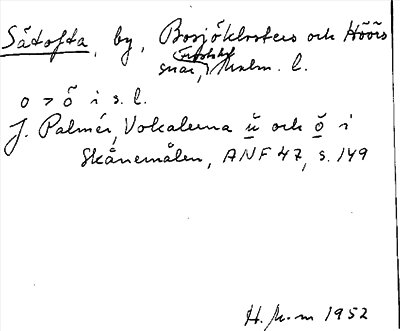 Sätofta, by, Bosjöklosters och Höörs
snar, Malm. l.
o > ö i s. l.
J. Palmér, Vokalerna ŭ och ŏ i
Skånemålen, ANF 47, s. 149
H. M-m 1952